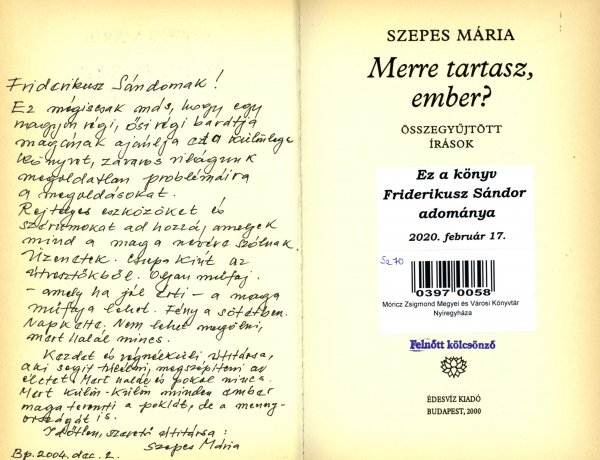 Friderikusz Sándornak!
Ez mégiscsak más, hogy egy
nagyon régi, ősi régi barátja
magának ajánlja ezt a különleges
könyvet, zavaros világunk
megoldatlan problémáira
a megoldásokat.
Rejtélyes eszközöket és
szérumokat ad hozzá, amelyek
mind a maga nevére szólnak.
Üzenetek. Csupa kiút az
útvesztőkből. Olyan műfaj
- amely ha jól érti - a maga
műfaja lehet. Fény a sötétben.
Napkelte. Nem lehet megölni,
mert halál nincs.
Kezdet és végnélküli útitársa,
aki segít túlélni, megszépíteni az
életet. Mert halál és pokol nincs.
Mert külön-külön minden ember
maga teremti a poklát, de a meny-
országát is.
Időtlen, szerető útitársa:
Szepes Mária
Bp. 2004. dec. 2.
SZEPES MÁRIA
Merre tartasz,
ember?
ÖSSZEGYŰJTÖTT
ÍRÁSOK
Ez a könyv
Friderikusz Sándor
adománya
2020. február 17.
Sz 70
0397 0058
Móricz Zsigmond Megyei és Városi Könyvtár
Nyíregyháza
Felnőtt kölcsönző
ÉDESVÍZ KIADÓ
BUDAPEST, 2000